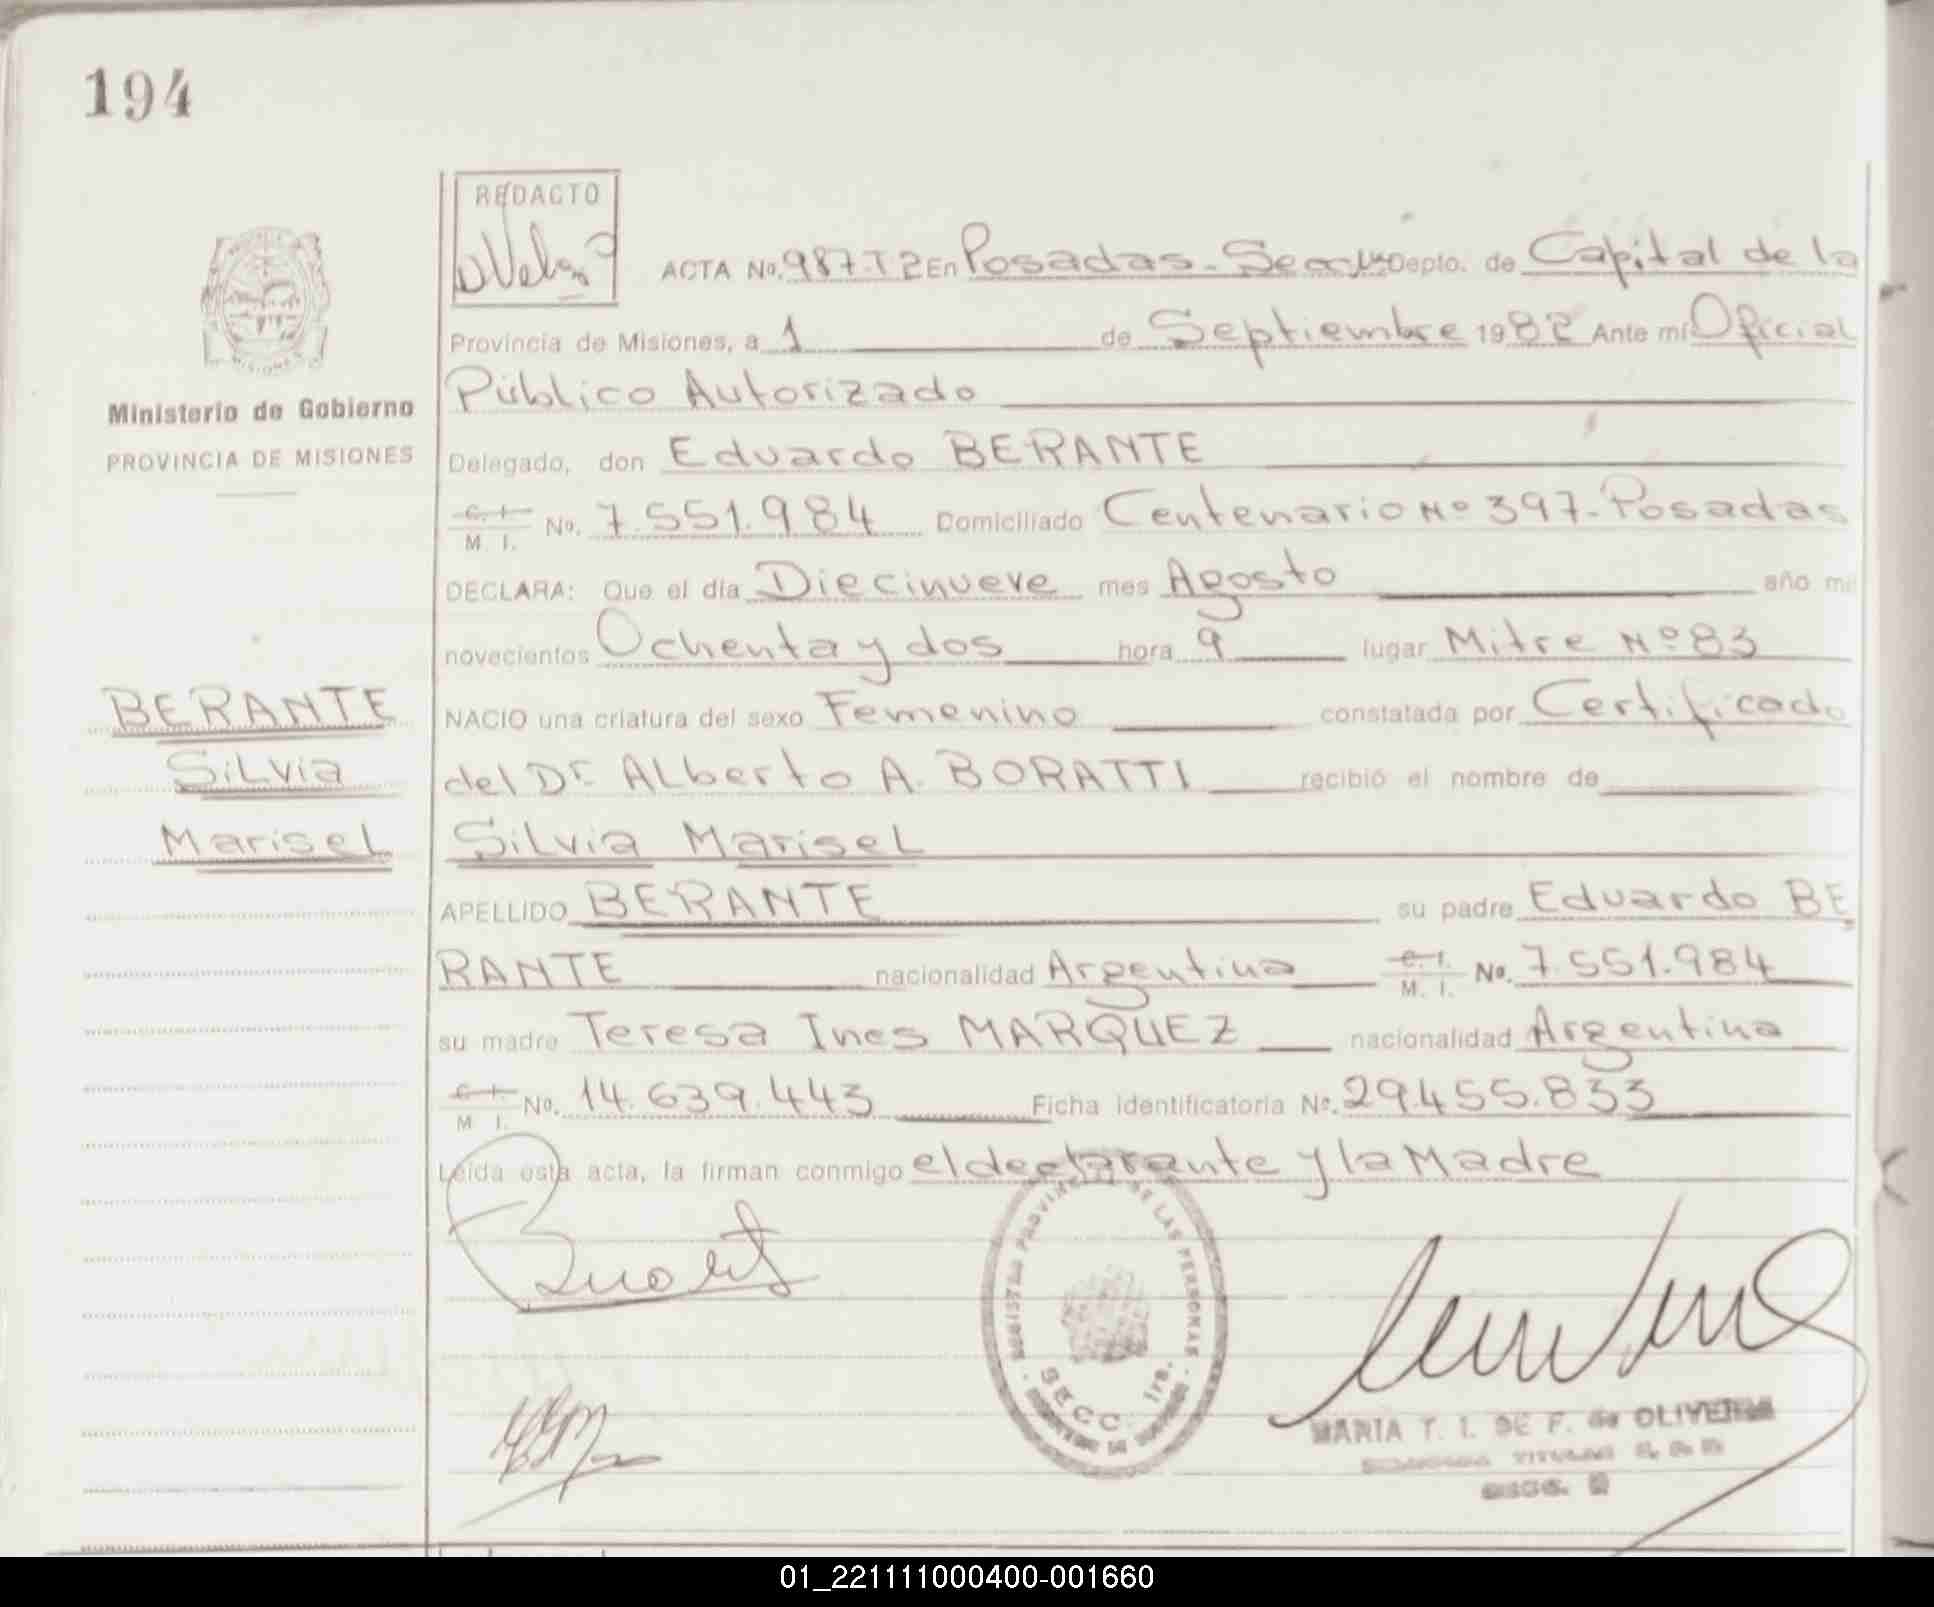 194
REDACTO
ACTA No. 987-T2 En Posadas - Secc. 1ra Depto. de Capital de la
Provincia de Misiones, a 1 de Septiembre 1982 Ante mi Oficial
Público Autorizado
Ministerio de Gobierno
PROVINCIA DE MISIONES
Delegado, don Eduardo BERANTE
C. I. M. I. No. 7.551.984 Domiciliado Centenario Nº 397-Posadas
DECLARA: Que el día Diecinueve mes Agosto año mil
novecientos Ochenta y dos hora 9 lugar Mitre Nº 83
BERANTE
Silvia
Marisel
NACIO una criatura del sexo Femenino constatada por Certificado
del Dr ALberto A. BORATTI recibió el nombre de
Silvia Marisel
APELLIDO BERANTE su padre Eduardo BE
RANTE nacionalidad Argentina C. I. M. I. No. 7.551.984
su madre Teresa Ines MARQUEZ nacionalidad Argentina
C. I. M. I. No. 14.639.443 Ficha identificatoria No. 29.455.833
Leída esta acta, la firman conmigo el declarante y la Madre
REGISTRO PROVINCIAL DE LAS PERSONAS
SECC. 1ra.
MARIA T. I. DE F. de OLIVEIRA
01_221111000400-001660